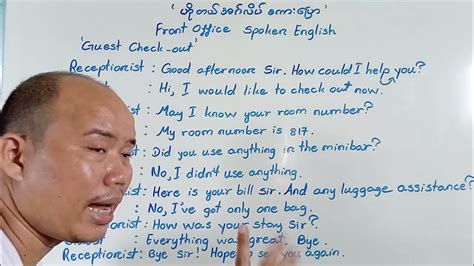 "ဟိုတယ်အင်္ဂလိပ် စကားပြော"
Front Office Spoken English
"Guest Check-out"
Receptionist : Good afternoon Sir. How could I help you?
: Hi, I would like to check out now.
: May I know your room number?
: My room number is 817.
: Did you use anything in the minibar?
: No, I didn't use anything.
: Here is your bill sir. And any luggage assistance?
: No, I've got only one bag.
: How was your stay Sir?
: Everything was great. Bye.
: Bye Sir! Hope to see you again.